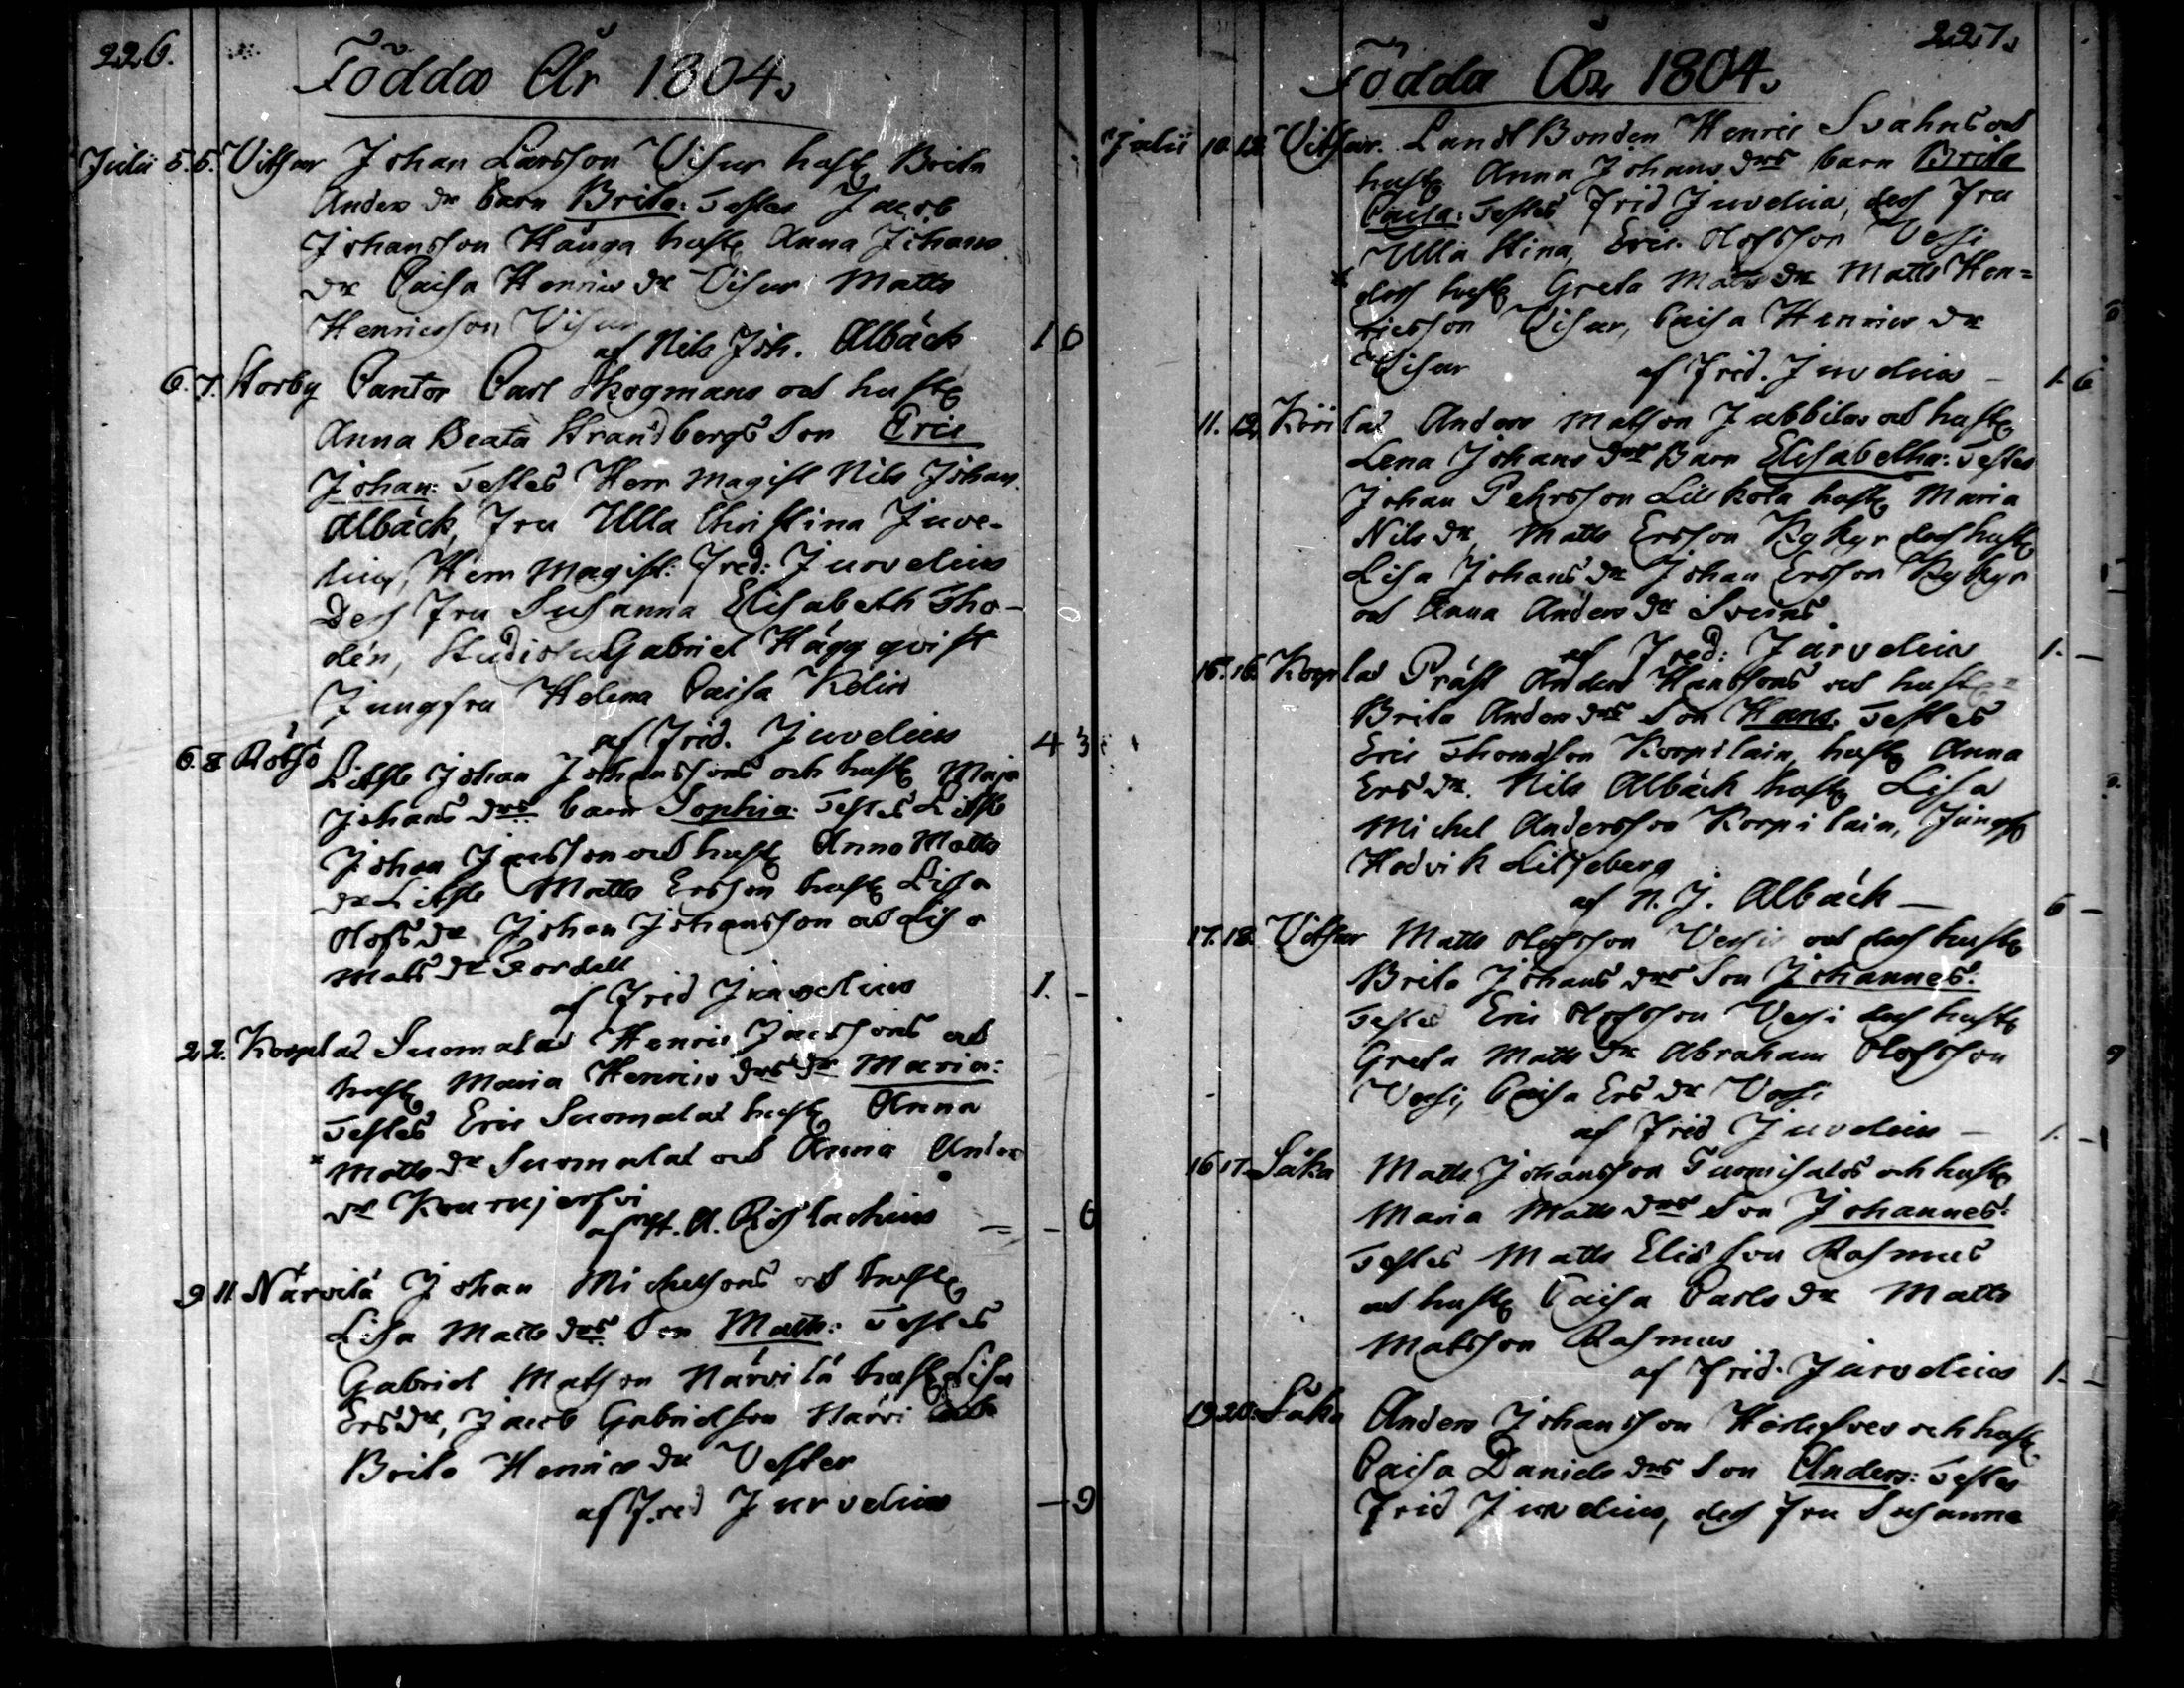 226.
Födda År 1804.
Julii 5. 5. Vitsar Johan Larsson Visur hust Brita
Anders dr barn Brita: Testes Jacob
Johansson Hånga hust Anna Johans
dr Caisa Henrics dr Visur Matts
Henricsson Visur
af Nils Joh. Albäck 1 6
6. 7. Storby Cantor Carl Skogmans och hust
Anna Beata Strandbergs Son Eric
Johan: Testes Herr Magist Nils Johan
Albäck, Fru Ulla Christina Juve-
lius, Herr Magist: Fred: Jurvelius
Dess Fru Susanna Elisabeth Tho-
lén, Gabriel Häggqvist
Jungfru Helena Caisa Kelin
af Frid. Jurvelius 4 3
6. 8. Rötsö Litsle Johan Johanssons och hust Maja
Johans drs barn Sophia: Testes Litsle
Johan Jacsson och hust Anna Matts
dr Litsle Matts Ersson hust Lisa
Olofs dr Johan Johansson och Lisa
Mats dr Fordell
af Frid Jurvelius 1. -
2 2. Korplax Suomalas Henric Jacssons och
hust Maria Henrics drs dr Maria:
Testes Eric Suomalas hust Anna
Matts dr Suomalas och Anna Anders
dr Kourujerfvi
af H. A. - 6
9 11. Närvilä Johan Michelsons och hust
Lisa Matts drs Son Matts: Testes
Gabriel Matson Närvilä hust Lisa
Ers dr, Jacob Gabrielsson Närvi
Brita Henrics dr Vester
af Fred Jurvelius - 9
227.
Födda År 1804.
Julii 10. 12. Vitsar. Landt Bonden Henric Svahns och
hust Anna Johans drs barn Brita
Caisa: Testes Frid Juvelius, dess Fru
Ulla Stina, Eric Olofsson Vessi
dess hust Greta Mats dr Matts Hen-
ricsson Visur, Caisa Henrics dr
Visur af Frid. Juvelius - 1. 6
11. 12. Anders Matson Jubbilas och hust
Lena Johans drs Barn Elisabetha: Testes
Johan Pehrsson Lillkola hust Maria
Nils dr, Matts Ersson Kykyr dess hust
Lisa Johans dr Johan Ersson Kykyr
och Anna Anders dr Svens
af Fred: Jurvelius 1. -
15. 16. Korplax Präst Anders Hanssons och hust
Brita Anders drs Son Hans. Testes
Eric Thomasson Korpilain, hust Anna
Ers dr. Nils Albäck hust Lisa
Michel Andersson Korpilain, Jungf
Hedvik Liljeberg
af N. J. Albäck - 6 -
17. 18. Vitsar Matts Olofsson Vessis och dess hust
Brita Johans drs Son Johannes:
Testes Eric Olofsson Vessi dess hust
Greta Matts dr Abraham Olofsson
Vessi, Caisa Ers dr Vessi
af Frid Juvelius - 1. -
16 17. Såka Matts Johansson Tuomisalos och hust
Maria Matts drs Son Johannes:
Testes Matts Elisson Rasmus
och hust Caisa Carls dr Matts
Matsson Rasmus
af Frid. Jurvelius 1. -
19. 20. Såka Anders Johansson och hust
Caisa Daniels drs Son Anders: Testes
Frid Jurvelius, dess Fru Susanna